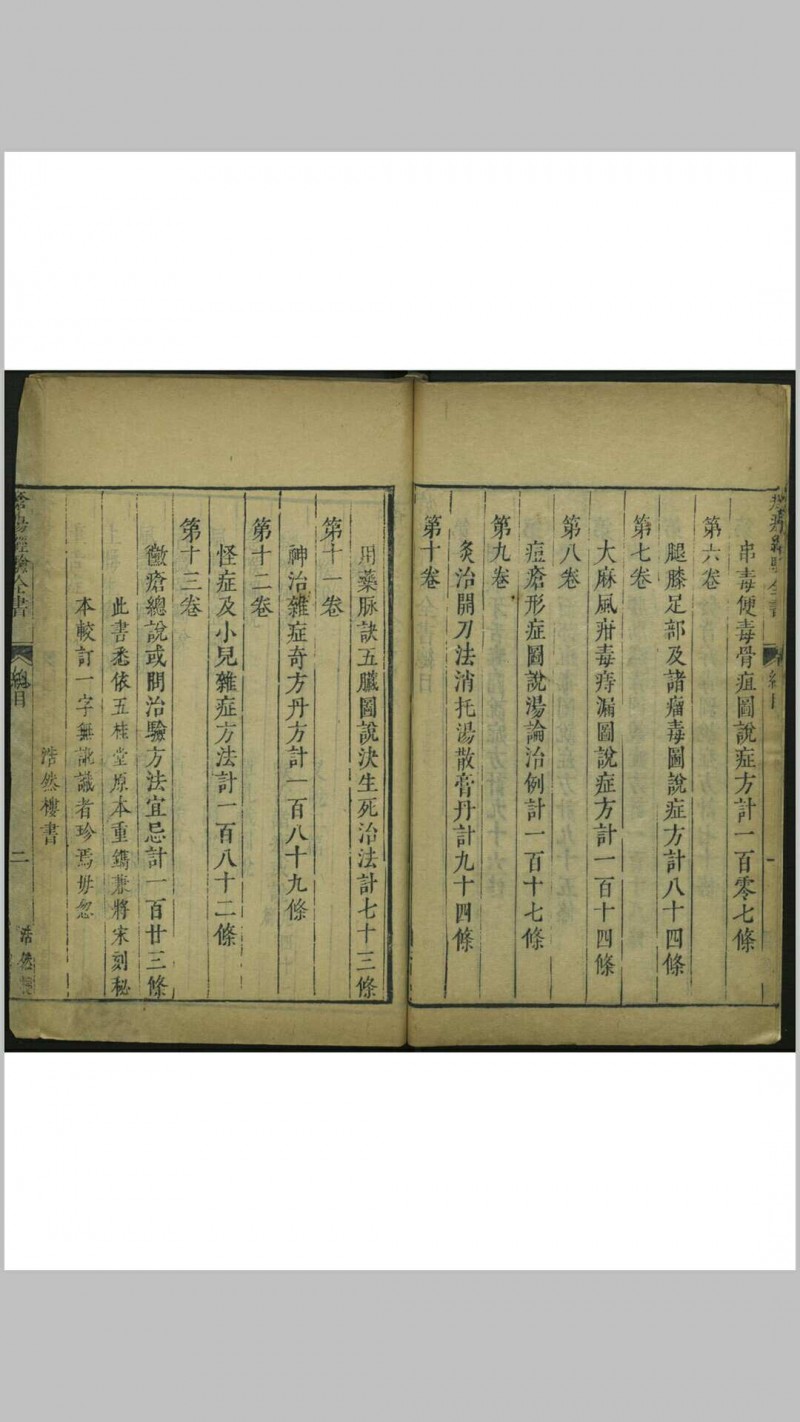 串毒便毒骨疽圖說症方計一百零七條
第六卷
腿膝足部及諸瘤毒圖說症方計八十四條
第七卷
大麻風疳毒痔漏圖說症方計一百十四條
第八卷
痘瘡形症圖說湯論治例計一百十七條
第九卷
灸治開刀法消托湯散膏丹計九十四條
第十卷
用藥脉訣五臟圖說決生死治法計七十三條
第十一卷
神治雜症奇方丹方計一百八十九條
第十二卷
怪症及小兒雜症方法計一百八十二條
第十三卷
黴瘡總說或問治驗方法宜忌計一百廿三條
此書悉依五桂堂原本重鐫兼將宋刻秘
本較訂一字無訛識者珍焉毋忽
浩然樓書
經驗全書
總目
二
浩然